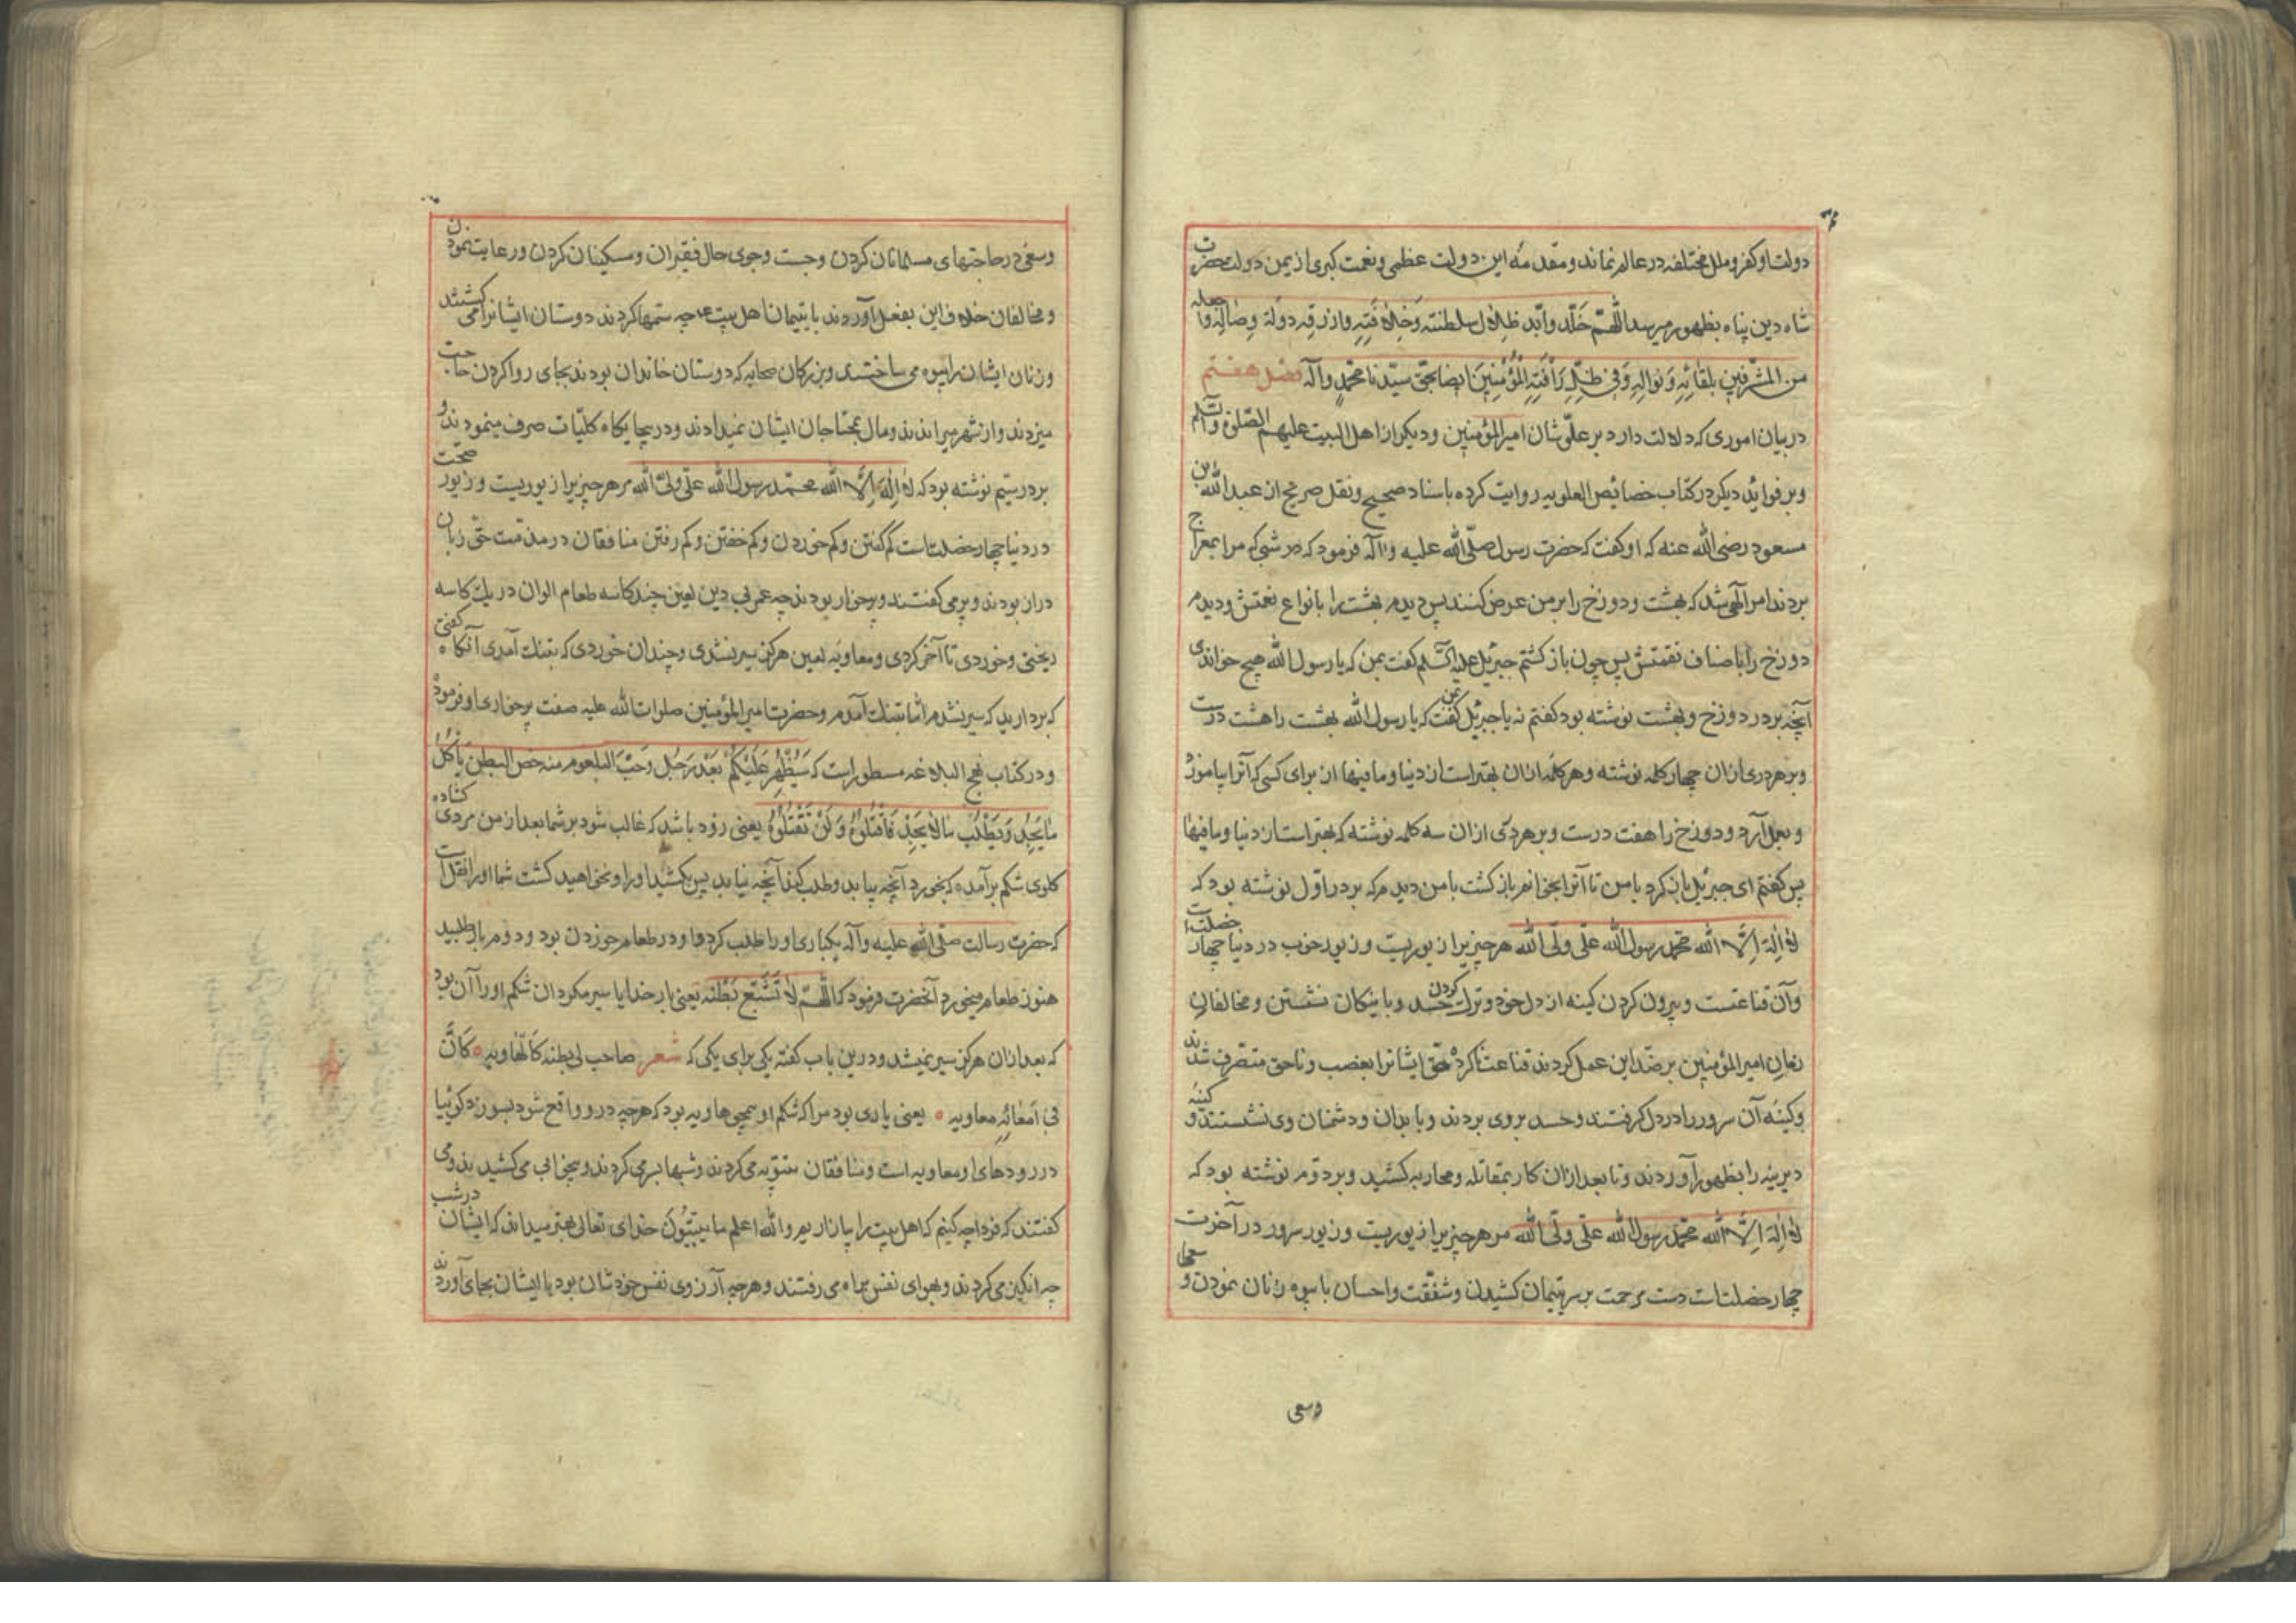 دولت او کفر و ملل مختلفه در عالم نماند و مقدمه این دولت عظمی و نعمت کبری از یمن دولت حضرت
شاه دین پناه بظهور میرسد اللّهمّ خَلّد و ابّد ظِلال سلطنته وَخِلافَتِهِ وارزقه دولة وِصَالِهِ واجعله
من المشرّفین بلقائِهِ وَنوالِهِ وَفِی ظِلِّ رَأفَتِهِ الْمُؤْمِنِینَ ایضا بحقّ سیّدنا محمّدٍ وآلِهِ فصل هفتم
در بیان اموری که دلالت دارد بر علوّ شان امیرالمؤمنین و دیگر از اهل البیت علیهم الصّلوة والسّلام
و بر فوائد دیگر در کتاب خصائص العلویه روایت کرده باسناد صحیح و نقل صریح از عبدالله بن
مسعود رضی الله عنه که او گفت که حضرت رسول صلّی الله علیه وآله فرمود که در شبی که مرا بمعراج
بردند امر الهی شد که بهشت و دوزخ را بر من عرض کنند پس دیدم بهشت را با انواع نعمتش و دیدم
دوزخ را باصناف نقمتش پس چون باز گشتم جبرئیل علیه السّلم گفت بمن که یا رسول الله هیچ خواندی
آنچه بر در دوزخ و بهشت نوشته بود گفتم نه یا جبرئیل گفت که یا رسول الله بهشت را هشت درست
و بر هر دری ازان چهار کلمه نوشته و هر کلمه ازان بهتر است از دنیا و ما فیها از برای کسی که آنرا بیاموزد
و بعمل آرد و دوزخ را هفت درست و بر هر دری ازان سه کلمه نوشته که بهتر است از دنیا و ما فیها
پس گفتم ای جبرئیل باز گرد با من تا آنرا بخوانم باز گشت با من دیدم که بر در اوّل نوشته بود که
لا اِلهَ اِلّا الله محمّد رسول الله علی ولی الله هر چیزیرا زیوریست و زیور خوب در دنیا چهار خصلت است
وآن قناعتست و بیرون کردن کینه از دل خود و ترک حسد کردن و با نیکان نشستن و مخالفان
زمان امیرالمؤمنین بر ضدّ این عمل کردند قناعت ناکرده حق ایشانرا بغصب و ناحق متصرف شدند
و کینه آن سرور را در دل گرفتند و حسد بر وی بردند و با بدان و دشمنان وی نشستند و کینه
دیرینه را بظهور آوردند و تا بعد ازان کار بمقاتله و محاربه کشید و بر دوّم نوشته بود که
لا اِلهَ اِلّا الله محمّد رسول الله علی ولی الله مر هر چیزیرا زیوریست و زیور سرور در آخرت
چهار خصلت است دست مرحمت بر سر یتیمان کشیدن و شفقت و احسان با بیوه زنان نمودن و
وسعی
وسعی در حاجتهای مسلمانان کردن و جست و جوی حال فقیران و مسکینان کردن و رعایت نمودن
و مخالفان خلاف این بفعل آوردند با یتیمان اهل بیت چه ستمها کردند دوستان ایشانرا می کشتند
و زنان ایشان را بیوه می ساختند و بزرگان صحابه که دوستان خاندان بودند بجای روا کردن حاجت
میزدند و از شهر میراندند و مال بمحتاجان ایشان نمیدادند و در بیجایگاه کلیّات صرف مینمودند و
بر در سیّم نوشته بود که لا اِلهَ اِلّا الله محمّد رسول الله علی ولی الله مر هر چیزیرا زیوریست و زیور صحّت
در دنیا چهار خصلت است کم گفتن و کم خوردن و کم خفتن و کم رفتن منافقان در مذمّت حق زبان
دراز بودند و پر می گفتند و پرخوار بودند چه عمر بی دین لعین چند کاسه طعام الوان در یک کاسه
ریختی و خوردی تا آخر کردی و معاویه لعین هرگز سیر نشدی و چندان خوردی که بتنک آمدی آنگاه گفتی
که بردارید که سیر نشدم امّا بتنک آمدم و حضرت امیرالمؤمنین صلوات الله علیه صفت پرخواری او فرمود
و در کتاب نهج البلاغه مسطور است که سَیُظْهِرُ عَلَیْکُمْ بَعْدِی رَجُل رَحْبُ البلعوم منه خص البطن یَأکُلُ
مَا یَجِدُ وَیَطْلُبُ مَا لا یَجِدُ فَاقْتُلُوهُ وَلَنْ تَقْتُلُوهُ یعنی زود باشد که غالب شود بر شما بعد از من مردی گشاده
گلوی شکم بر آمده که بخورد آنچه بیابد و طلب کند آنچه نیابد پس بکشید او را و نخواهید کشت شما او را نقل است
که حضرت رسالت صلّی الله علیه وآله یکباری او را طلب کرد و او در طعام خوردن بود و دوم بار طلبید
هنوز طعام میخورد آنحضرت فرمود که اللّهمّ لا تُشْبِعْ بَطْنَه یعنی بار خدایا سیر مگردان شکم او را آن بود
که بعد ازان هرگز سیر نمیشد و درین باب گفته یکی برای یکی که شعر صاحب لی بطنه کالهاویه کَانَّ
فی اَمْعَائِهِ معاویه یعنی یاری بود مرا که شکم او همچو هاویه بود که هرچه در و واقع شود بسوزد گوئیا
در رودهای او معاویه است و منافقان شبها بسر می کردند و بیخوابی می کشیدند و می
گفتند که فردا چه کنیم که اهل بیت را بیازاریم والله اعلم ما یبیّتُونَ خدای تعالی بهتر میداند که ایشان در شب
چه انگیز می کردند و بهوای نفس براه می رفتند و هرچه آرزوی نفس خودشان بود با ایشان بجای آوردند